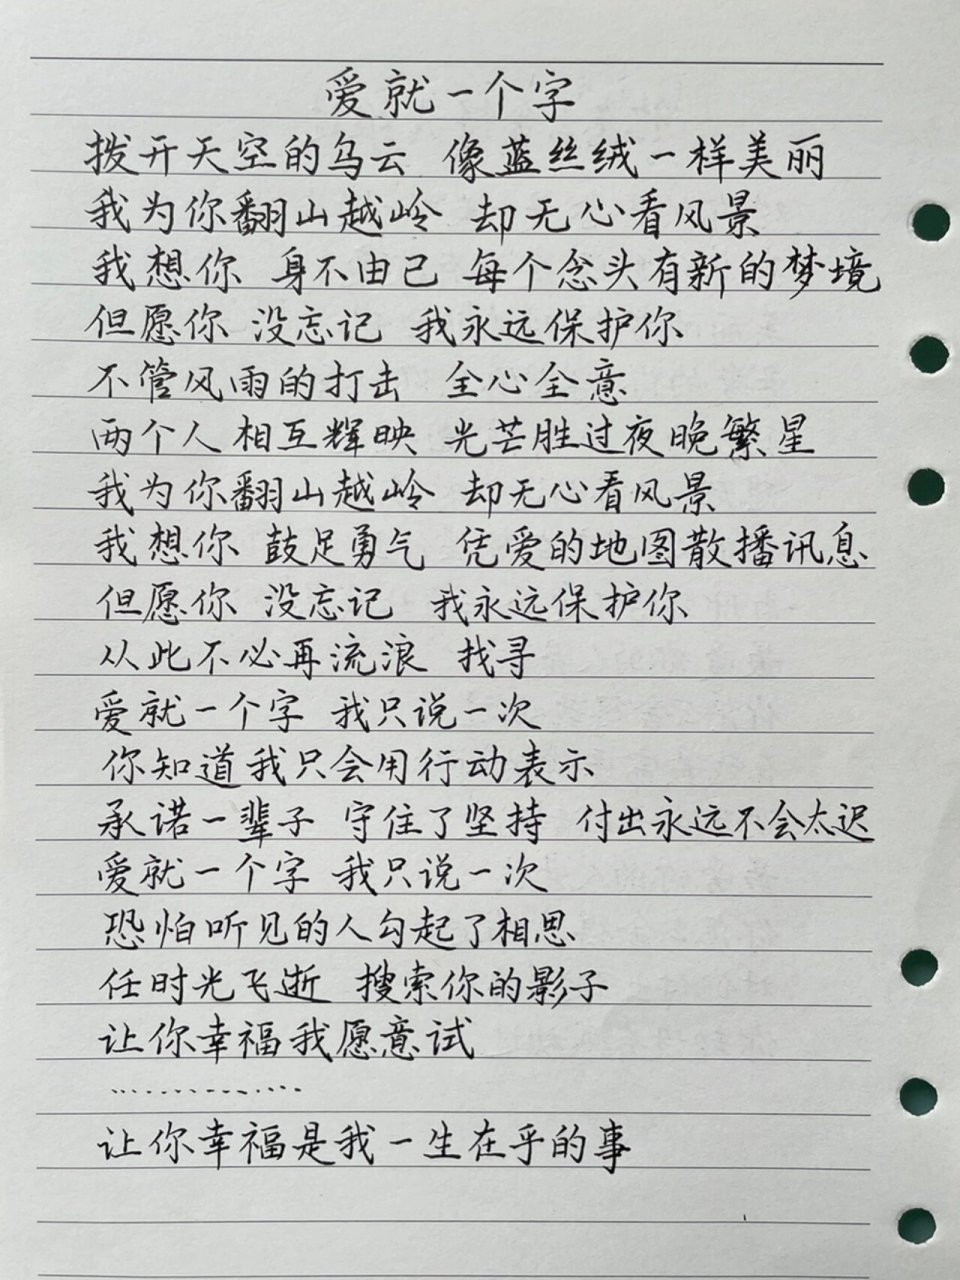 爱就一个字
拨开天空的乌云 像蓝丝绒一样美丽
我为你翻山越岭 却无心看风景
我想你 身不由己 每个念头有新的梦境
但愿你 没忘记 我永远保护你
不管风雨的打击 全心全意
两个人相互辉映 光芒胜过夜晚繁星
我为你翻山越岭 却无心看风景
我想你 鼓足勇气 凭爱的地图散播讯息
但愿你 没忘记 我永远保护你
从此不必再流浪 找寻
爱就一个字 我只说一次
你知道我只会用行动表示
承诺一辈子 守住了坚持 付出永远不会太迟
爱就一个字 我只说一次
恐怕听见的人勾起了相思
任时光飞逝 搜索你的影子
让你幸福我愿意试
…………
让你幸福是我一生在乎的事